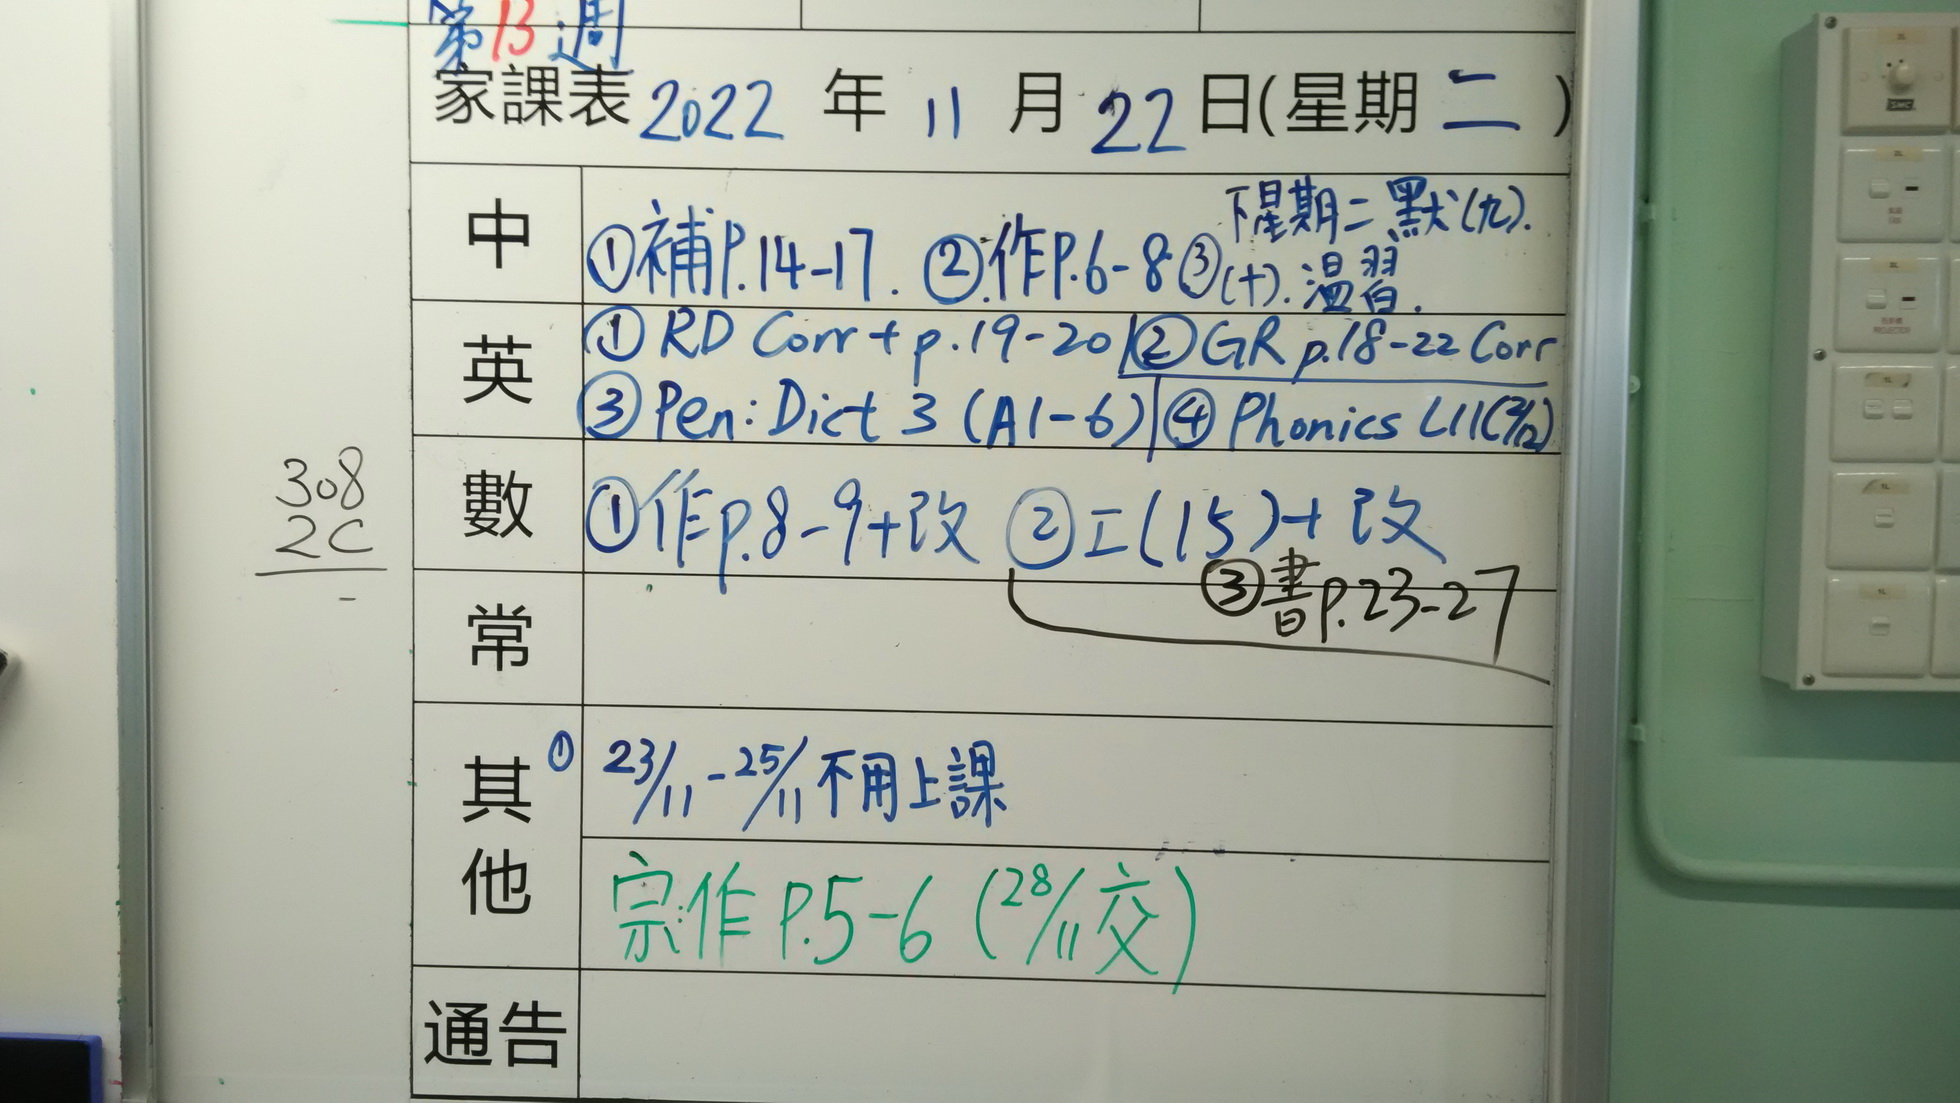 第13週
家課表 2022 年 11 月 22 日(星期 二 )
中
①補P.14-17. ②.作P.6-8 ③ 下星期二 默(九).
(十). 溫習.
英
① RD Corr + p.19-20 ② GR p.18-22 Corr
③ Pen: Dict 3 (A1-6) ④ Phonics L11(2/12)
數
①作p.8-9+改 ②工(15)+改
③書p.23-27
308
2C
常
其他
① 23/11-25/11不用上課
宗:作 P.5-6 (28/11交)
通告